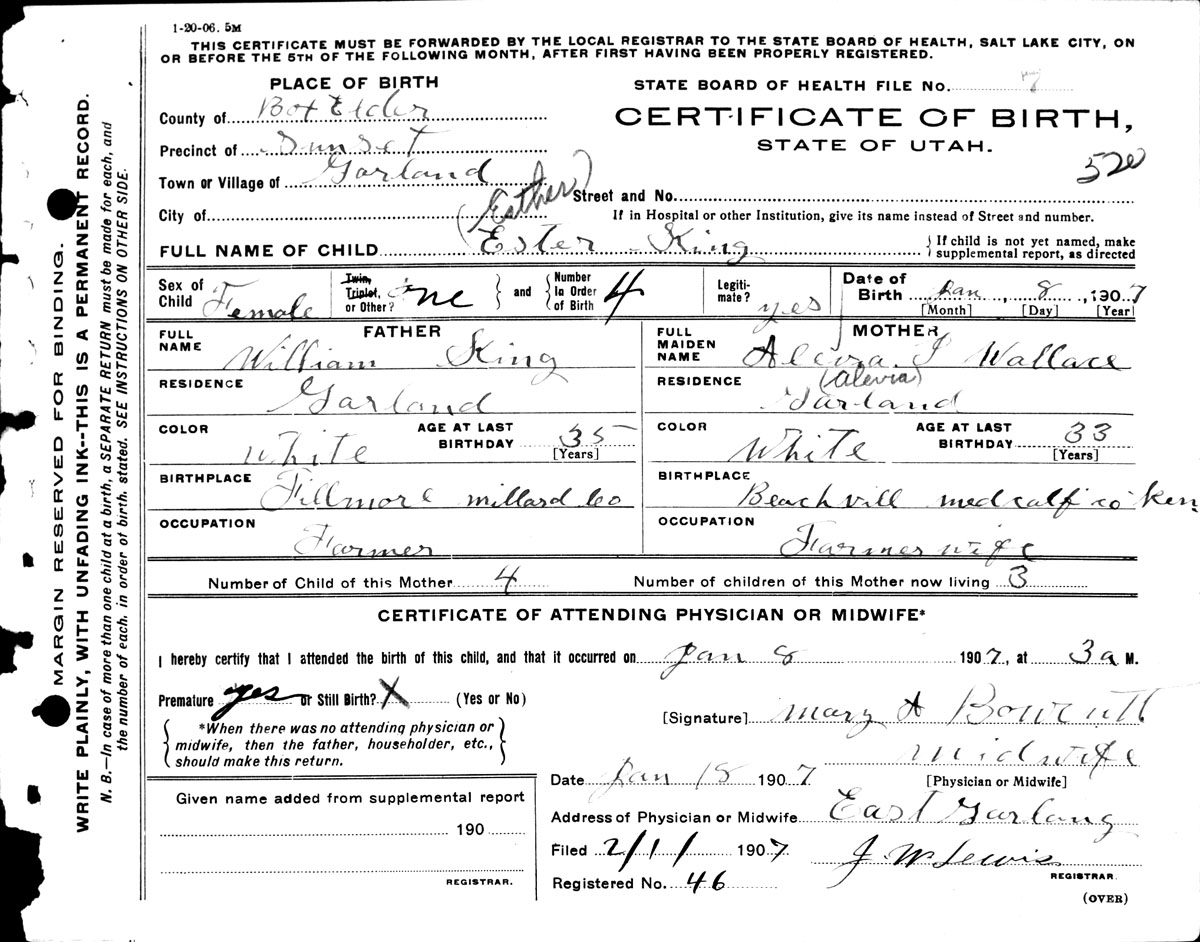 1-20-06. 5M
THIS CERTIFICATE MUST BE FORWARDED BY THE LOCAL REGISTRAR TO THE STATE BOARD OF HEALTH, SALT LAKE CITY, ON
OR BEFORE THE 5TH OF THE FOLLOWING MONTH, AFTER FIRST HAVING BEEN PROPERLY REGISTERED.
PLACE OF BIRTH
STATE BOARD OF HEALTH FILE No. 7
County of Box Elder
CERTIFICATE OF BIRTH,
Precinct of Sunset
STATE OF UTAH.
520
Town or Village of Garland
(Esther)
Street and No.
City of
If in Hospital or other Institution, give its name instead of Street and number.
FULL NAME OF CHILD Ester King
If child is not yet named, make
supplemental report, as directed
Sex of Child Female
Twin, Triplet, or Other? one
and Number In Order of Birth 4
Legiti-mate? yes
Date of Birth Jan 8, 1907
[Month] [Day] [Year]
FATHER
FULL NAME William King
RESIDENCE Garland
COLOR White
AGE AT LAST BIRTHDAY 35
[Years]
BIRTHPLACE Fillmore millard Co
OCCUPATION Farmer
MOTHER
FULL MAIDEN NAME Alevra J Wallace
(Alevia)
RESIDENCE Garland
COLOR White
AGE AT LAST BIRTHDAY 33
[Years]
BIRTHPLACE Beachvill medcalf co ken
OCCUPATION Farmer wife
Number of Child of this Mother 4 Number of children of this Mother now living 3
CERTIFICATE OF ATTENDING PHYSICIAN OR MIDWIFE*
I hereby certify that I attended the birth of this child, and that it occurred on Jan 8 1907, at 3a M.
Premature yes or Still Birth? X (Yes or No)
*When there was no attending physician or
midwife, then the father, householder, etc.,
should make this return.
[Signature] Mary A
midwife
[Physician or Midwife]
Date Jan 18 1907
Address of Physician or Midwife East Garland
Filed 2/1/ 1907 J. W. Lewis
REGISTRAR.
Registered No. 46
(OVER)
Given name added from supplemental report
190
REGISTRAR.
MARGIN RESERVED FOR BINDING.
WRITE PLAINLY, WITH UNFADING INK--THIS IS A PERMANENT RECORD.
N. B.—In case of more than one child at a birth, a SEPARATE RETURN must be made for each, and
the number of each, in order of birth, stated. SEE INSTRUCTIONS ON OTHER SIDE.